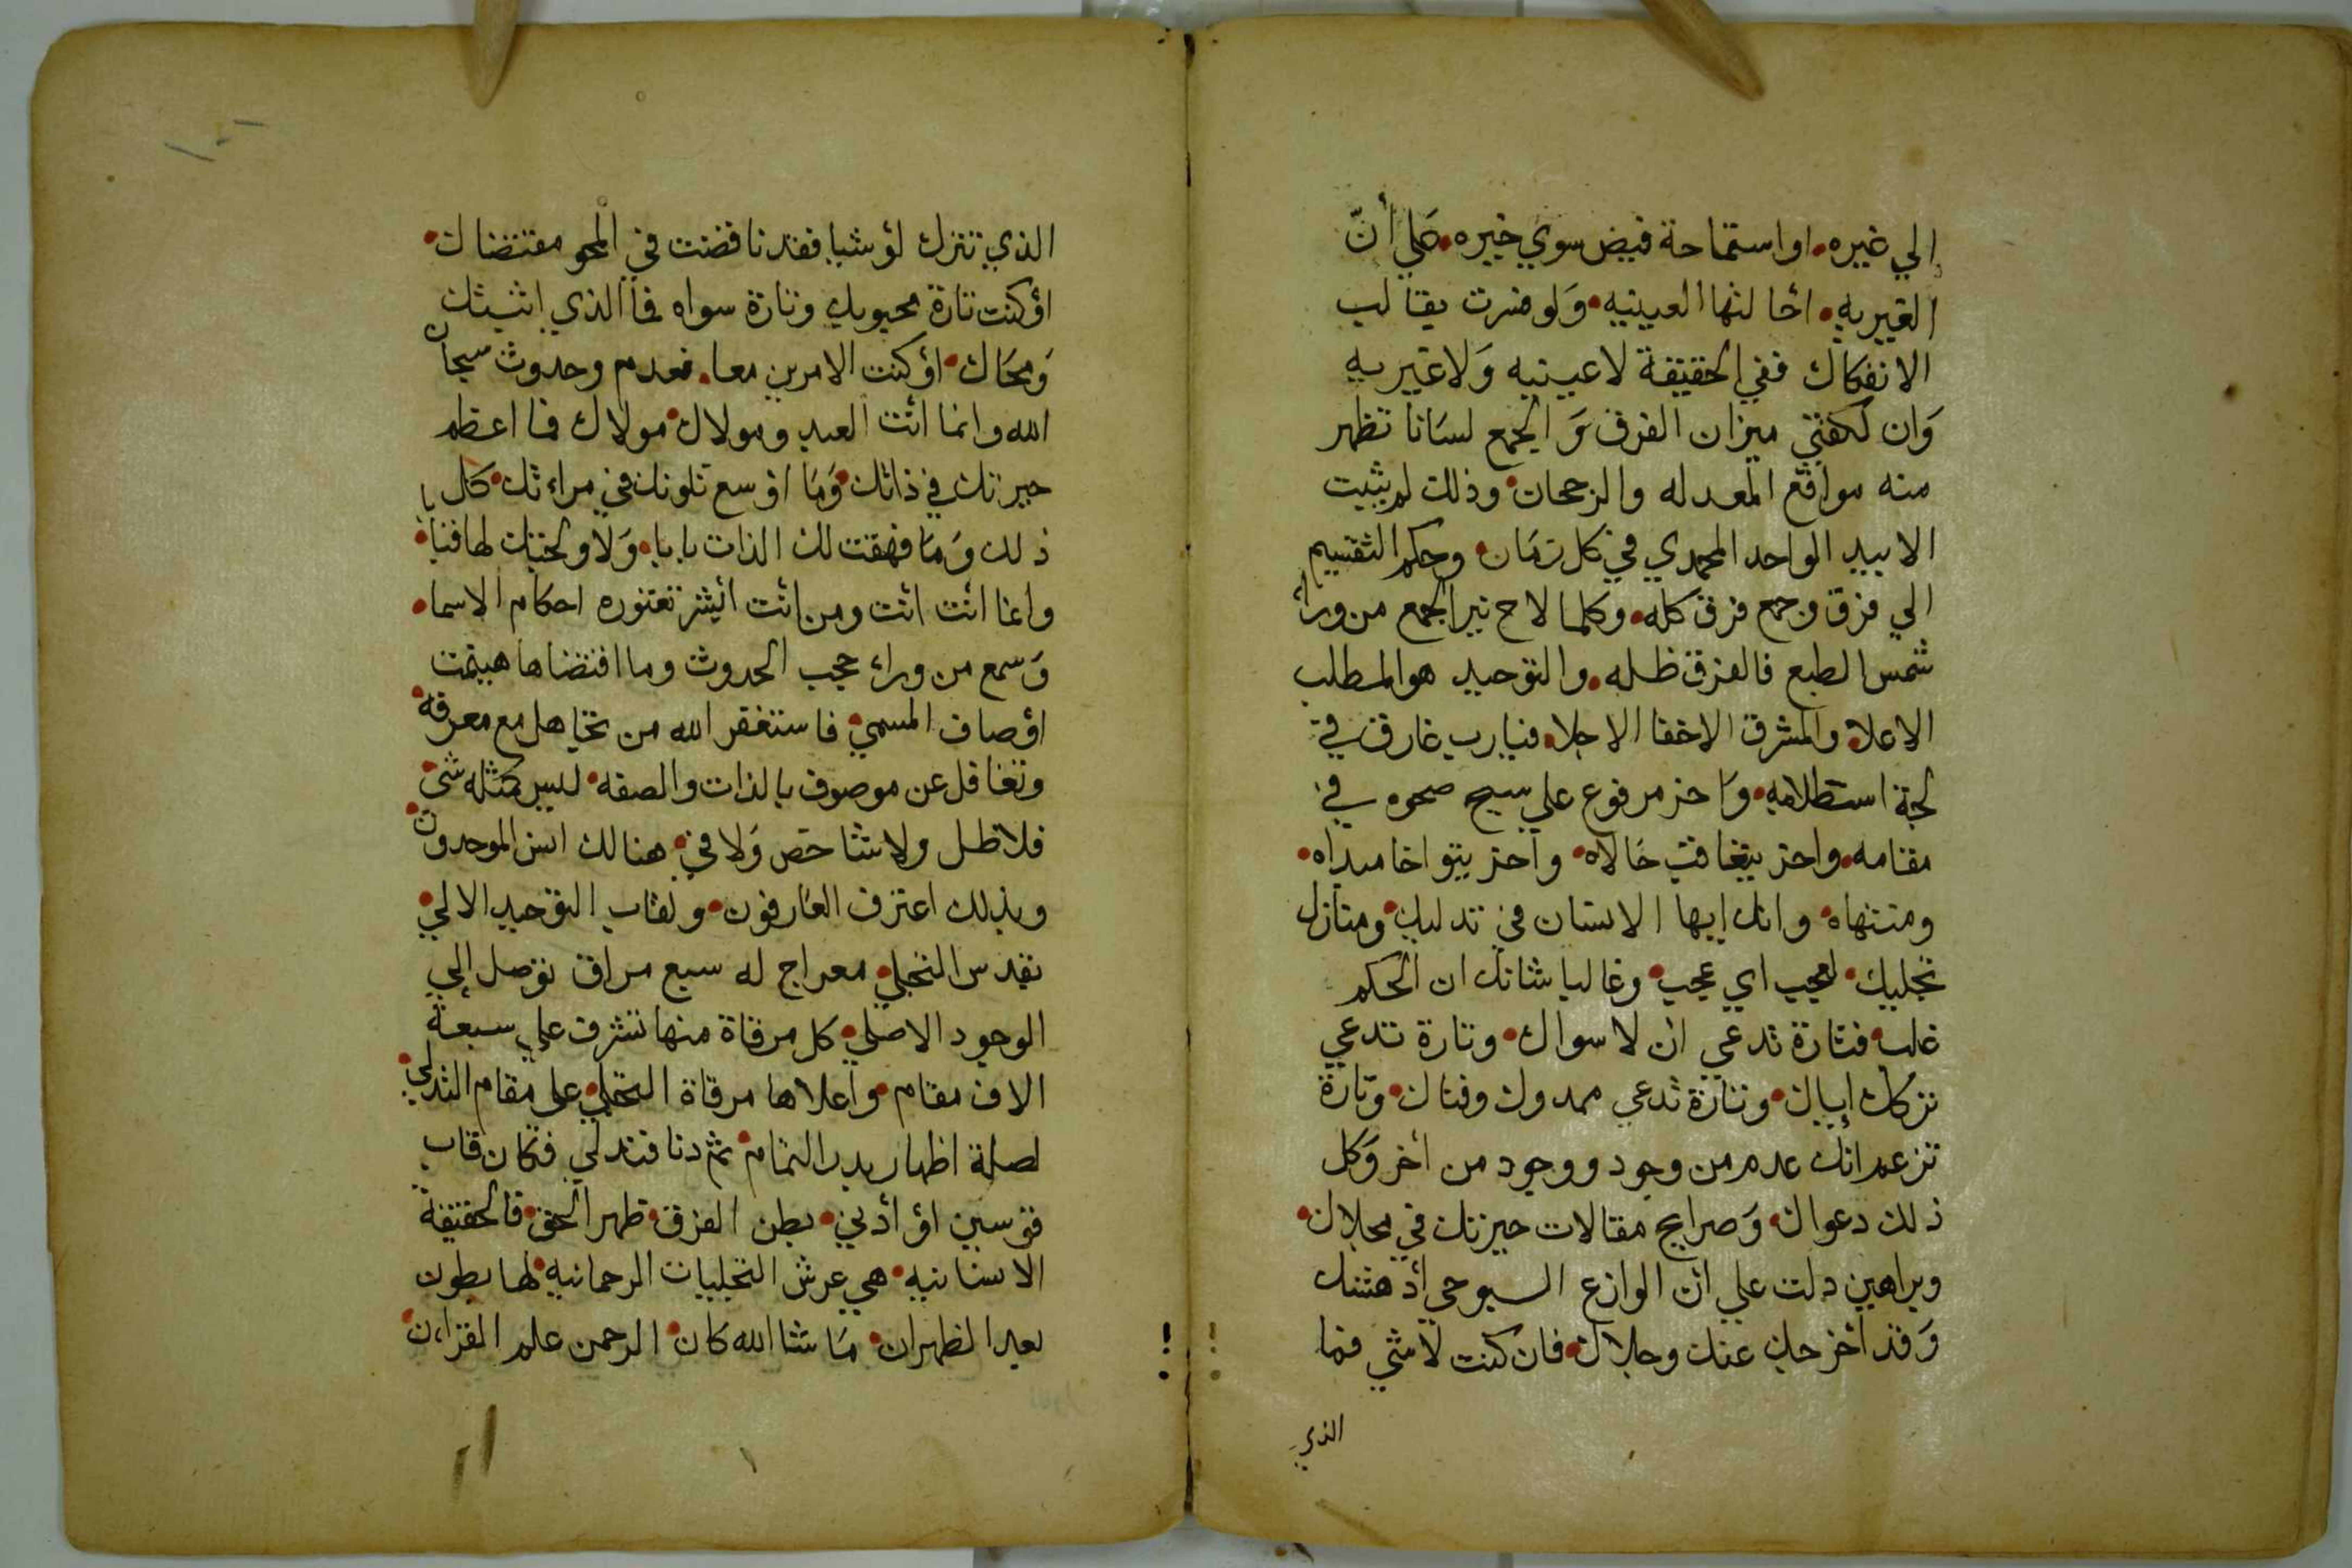 الي غيره • او استماحة فيض سوي خيره • علي أنّ
الغيريه • احالتها العينيه • وَلو ضرت يقالب
الانفكاك ففي الحقيقة لا عينيه وَلا غيريه
وَان لكفتي ميزان الفرق وَ الجمع لسَانا تظهر
منه مواقع المعدله والرجحان • وذلك لم يثبت
الا بيد الواحد المحمدي في كل زمَان • وحكم التقسيم
الي فرق وجمع فرق كله • وكلما لاح نير الجمع من وراء
شمس الطبع فالفرق ظله • والتوحيد هو المطلب
الاعلا • والمشرق الاخفا الاجلا • فيا رب غارق في
لجة استطلامه • وَاخر مرفوع علي سيح صحوه في
مقامه • واخر بتغافت حَالاه • وآخر بتواخا مبداه •
ومنتهاه • وانك ايها الانسان في تدليك • ومنازل
تجليك • لعجب اي عجب • وغالبا شانك ان الحكم
غلب • فتارة تدعي ان لا سواك • وتارة تدعي
تركك إياك • وتارة تدعي ممدوك وفناك • وتارة
تزعم انك عدم من وجود ووجود من أخر وَكل
ذلك دعواك • وَصرايح مقالات حيرتك في مجلاك •
وبراهين دلت علي ان الوازع السبوحي أدهشك
وَقد أخرجك عنك وجلاك • فان كنت لا شي فما
الذي
الذي تنزل لؤشيا فقد ناقضت في المحو مقتضاك •
اؤكنت تارة محبوبك وتارة سواه فما الذي اثبتك
وَمحَاك • اؤكنت الامرين معا • فعدم وحدوث سبحان
الله وانما انت العبد ومولاك • مولاك فما اعظم
حيرتك في ذاتك • وَمَا اوسع تلونك في مراءتك • كل
ذلك وَمَا فهقت لك الذات بابا • وَلا ولجتك لها فنبا •
وانما انت انت ومن انت اليشر تعتوره احكام الاسما •
وَسمع من وراء حجب الحدوث وما اقتضاها هينمت
اؤصاف المسمي • فاستغفر الله من تجاهل مع معرفه •
وتغافل عن موصوف بالذات والصفه • ليس كمثله شي •
فلا ظل ولا شاخص وَلا في • هنالك انس الموحدون •
وبذلك اعترف العارفون • ولقاب التوحيد الالي •
تقدس التجلي • معراج له سبع مراق توصل إلي
الوجود الاصلي • كل مرقاة منها تشرف علي سبعة
الاف مقام • وأعلاها مرقاة التجلي • علي مقام التدلي •
لصلة اظهار بدر التمام • ثم دنا فتدلي فكان قاب
قوسين اؤ أدني • بطن الفرق • ظهر الحق • فالحقيقة
الانسانيه • هي عرش التجليات الرحمانيه • لها بطون
بعد الظهران • مَا شا الله كان • الرحمن علم القران •